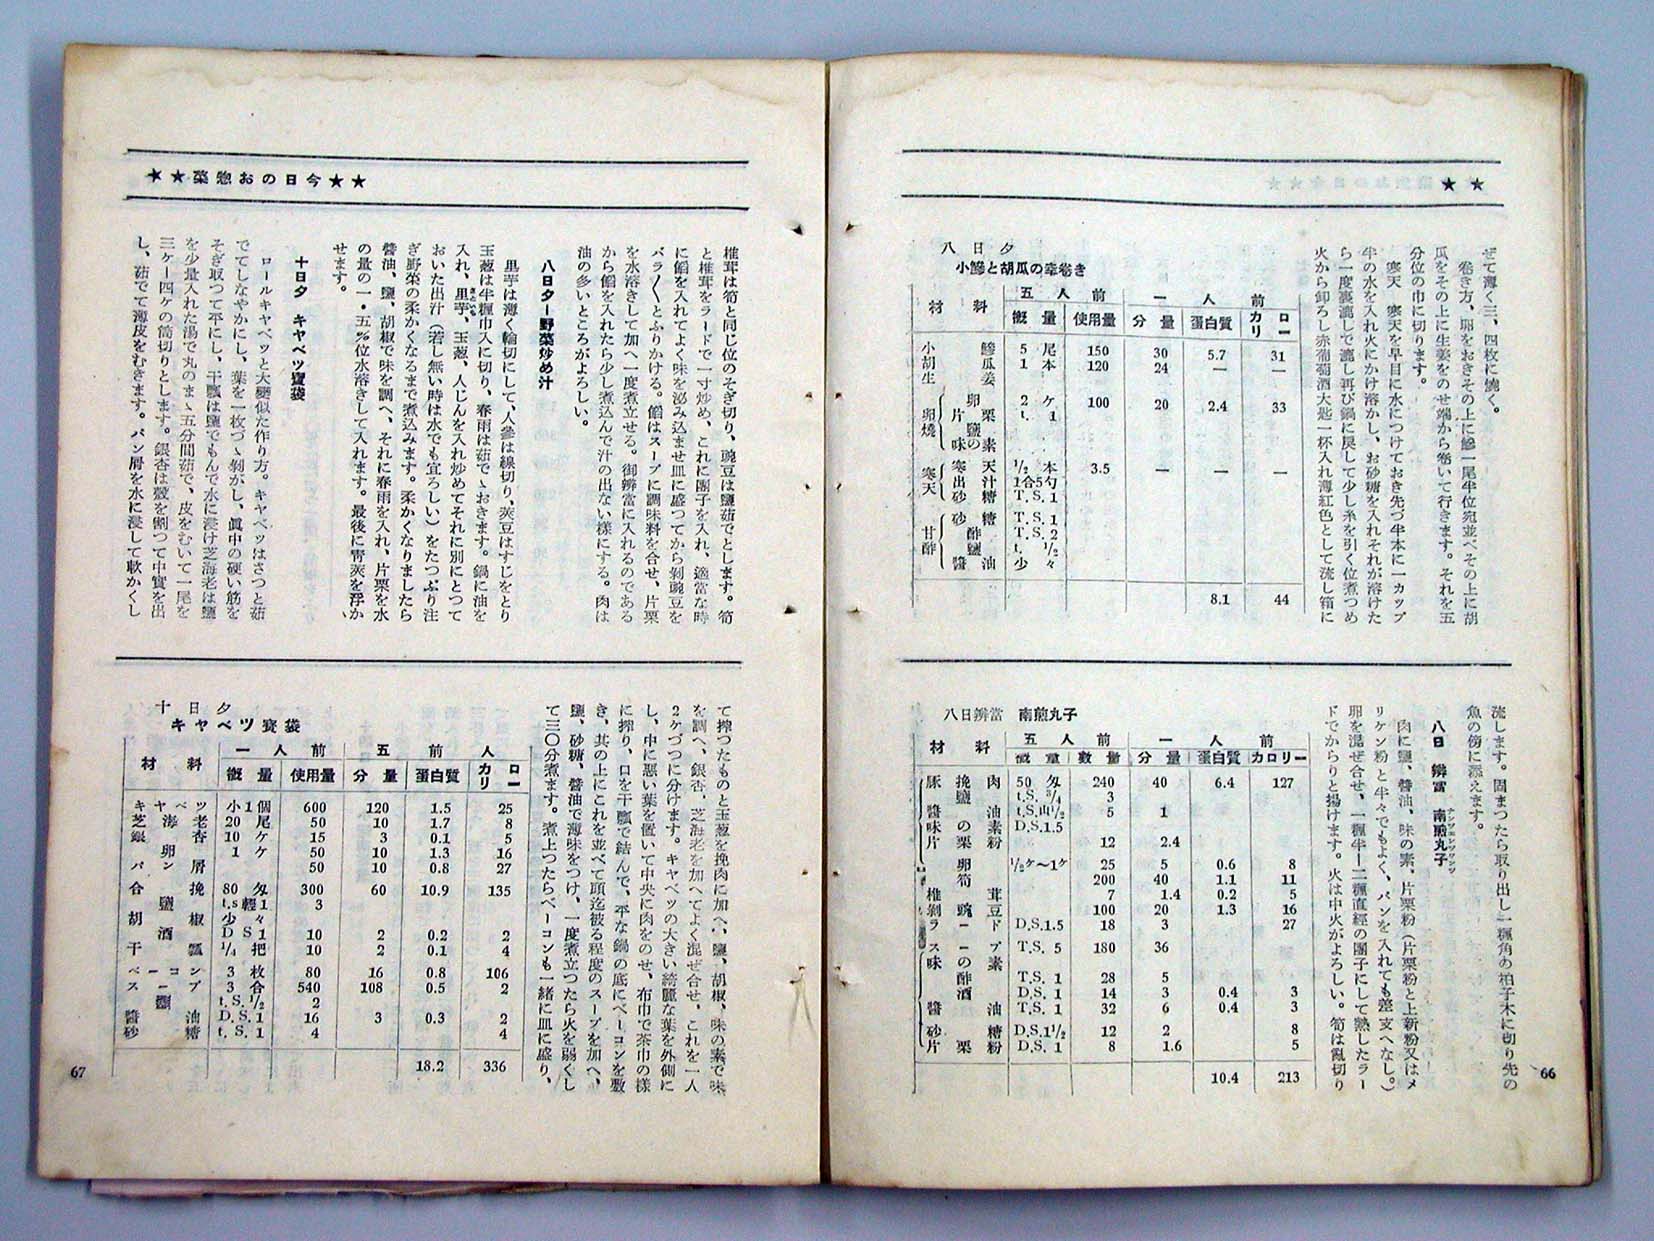 ★★
ぜて薄く三、四枚に焼く。
巻き方、卵をおきその上に鰺一尾半位宛並べその上に胡
瓜をその上に生姜をのせ端から巻いて行きます。それを五
分位の巾に切ります。
寒天　寒天を早目に水につけておき先づ半本に一カップ
半の水を入れ火にかけ溶かし、お砂糖を入れそれが溶けた
ら一度裏漉しで漉し再び鍋に戻して少し糸を引く位煮つめ
火から卸ろし赤葡萄酒大匙一杯入れ薄紅色として流し箱に
八日夕
小鰺と胡瓜の幸巻き
材料　五人前　一人前
概量　使用量　分量　蛋白質　カロリー
小鰺　5尾　150　30　5.7　31
胡瓜　1本　120　24　—　—
生姜
卵焼　卵　2ケ　100　20　2.4　33
片栗　t. 1
鹽
味の素
寒天　寒天　½本　3.5　—　—　—
出汁　1合5勺
砂糖　T.S. 1
甘酢　砂糖　T.S. 1
酢　T.S. 2
鹽　t. ½
醤油　少々
8.1　44
流します。固まつたら取り出し一糎角の拍子木に切り先の
魚の傍に添えます。
八日　辨當　南煎丸子
肉に鹽、醤油、味の素、片栗粉（片栗粉と上新粉又はメ
リケン粉と半々でもよく、パンを入れても差支へなし。）
卵を混ぜ合せ、一糎半―二糎直經の團子にして熱したラー
ドでからりと揚げます。火は中火がよろしい。筍は亂切り
八日辨當　南煎丸子
材料　五人前　一人前
概量　數量　分量　蛋白質　カロリー
豚挽肉　50匁　240　40　6.4　127
鹽　t.S. ¾　3
醤油　t.S.山½　5　1
味の素　D.S.1.5
片栗粉　12　2.4
卵　½ケ〜1ケ　25　5　0.6　8
筍　200　40　1.1　11
椎茸　7　1.4　0.2　5
剝豌豆　100　20　1.3　16
ラード　D.S.1.5　18　3　27
スープ　T.S. 5　180　36
味の素
酢　T.S. 1　28　5
酒　D.S. 1　14　3　0.4　3
醤油　T.S. 1　32　6　0.4　3
砂糖　D.S.1½　12　2　8
片栗粉　D.S. 1　8　1.6　5
10.4　213
66
★★今日のお惣菜★★
椎茸は筍と同じ位のそぎ切り、豌豆は鹽茹でとします。筍
と椎茸をラードで一寸炒め、これに團子を入れ、適當な時
に餡を入れてよく味を泌み込ませ皿に盛つてから剝豌豆を
バラ〳〵とふりかける。餡はスープに調味料を合せ、片栗
を水溶きして加へ一度煮立せる。御辨當に入れるのである
から餡を入れたら少し煮込んで汁の出ない樣にする。肉は
油の多いところがよろしい。
八日夕ー野菜炒め汁
里芋は薄く輪切にして、人參は線切り、莢豆はすじをとり
玉葱は半糎巾入に切り、春雨は茹でゝおきます。鍋に油を
入れ、里芋、玉葱、人じんを入れ炒めてそれに別にとつて
おいた出汁（若し無い時は水でも宜ろしい）をたつぷり注
ぎ野菜の柔かくなるまで煮込みます。柔かくなりましたら
醤油、鹽、胡椒で味を調へ、それに春雨を入れ、片栗を水
の量の一・五％位水溶きして入れます。最後に靑莢を浮か
せます。
十日夕　キヤベツ寳袋
ロールキヤベツと大變似た作り方。キヤベツはさつと茹
でてしなやかにし、葉を一枚づゝ剝がし、眞中の硬い筋を
そぎ取つて平にし、干瓢は鹽でもんで水に浸け芝海老は鹽
を少量入れた湯で丸のまゝ五分間茹で、皮をむいて一尾を
三ケ―四ケの筒切りとします。銀杏は殼を割つて中實を出
し、茹でて薄皮をむきます。パン屑を水に浸して軟かくし
て搾つたものと玉葱を挽肉に加へ、鹽、胡椒、味の素で味
を調へ、銀杏、芝海老を加へてよく混ぜ合せ、これを一人
2ケづつに分けます。キヤベツの大きい綺麗な葉を外側に
し、中に悪い葉を置いて中央に肉をのせ、布巾で茶巾の樣
に搾り、口を干瓢で結んで、平な鍋の底にベーコンを敷
き、其の上にこれを並べて頭迄被る程度のスープを加へ、
鹽、砂糖、醤油で薄味をつけ、一度煮立つたら火を弱くし
て三〇分煮ます。煮上つたらベーコンも一緒に皿に盛り、
十日夕
キヤベツ寳袋
材料　一人前　五前人
概量　使用量　分量　蛋白質　カロリー
キヤベツ　小1個　600　120　1.5　25
芝海老　20尾　50　10　1.7　8
銀杏　10ケ　15　3　0.1　5
卵　1ケ　50　10　1.3　16
パン屑　50　10　0.8　27
合挽　80匁　300　60　10.9　135
鹽　t.s輕1　3
胡椒　少々
酒　D S 1　10　2　0.2　2
干瓢　¼把　10　2　0.1　4
ベーコン　3枚　80　16　0.8　106
スープ　3合　540　108　0.5　2
鹽　t.S.½　2
醤油　D.S. 1　16　3　0.3　2
砂糖　t.S. 1　4　4
18.2　336
67